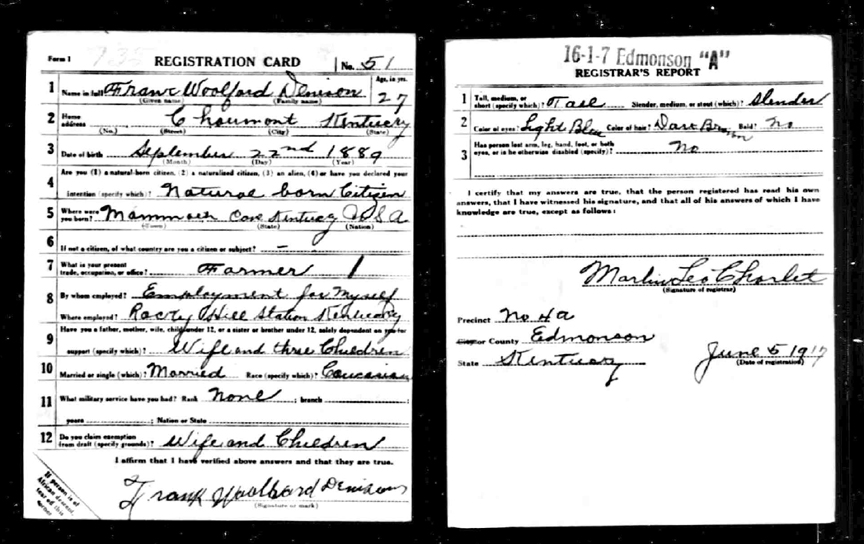 735
Form 1 REGISTRATION CARD No. 51
1 Name in full Franc Woolford Denison Age, in yrs. 27
(Given name) (Family name)
2 Home address Choumont Kentucky
(No.) (Street) (City) (State)
3 Date of birth September 22nd 1889
(Month) (Day) (Year)
4 Are you (1) a natural-born citizen, (2) a naturalized citizen, (3) an alien, (4) or have you declared your
intention (specify which)? Natural born Citizen
5 Where were you born? Mammoth Cave Kentucky U S A
(Town) (State) (Nation)
6 If not a citizen, of what country are you a citizen or subject? -
7 What is your present trade, occupation, or office? Farmer 1
8 By whom employed? Employment for Myself
Where employed? Rocky Hill Station Kentucky
9 Have you a father, mother, wife, child under 12, or a sister or brother under 12, solely dependent on you for
support (specify which)? Wife and three Children
10 Married or single (which)? Married Race (specify which)? Caucasian
11 What military service have you had? Rank None ; branch
years ; Nation or State
12 Do you claim exemption from draft (specify grounds)? Wife and Children
I affirm that I have verified above answers and that they are true.
Frank Woolford Denison
(Signature or mark)
If person is of
African descent,
tear off this
corner
16-1-7 Edmonson "A"
REGISTRAR'S REPORT
1 Tall, medium, or short (specify which)? Tall Slender, medium, or stout (which)? Slender
2 Color of eyes? Light Blue Color of hair? Dark Brown Bald? No
3 Has person lost arm, leg, hand, foot, or both eyes, or is he otherwise disabled (specify)? No
I certify that my answers are true, that the person registered has read his own
answers, that I have witnessed his signature, and that all of his answers of which I have
knowledge are true, except as follows:
Marlin Leo Charlet
(Signature of registrar)
Precinct No 4a
City or County Edmonson
State Kentucky June 5 1917
(Date of registration)